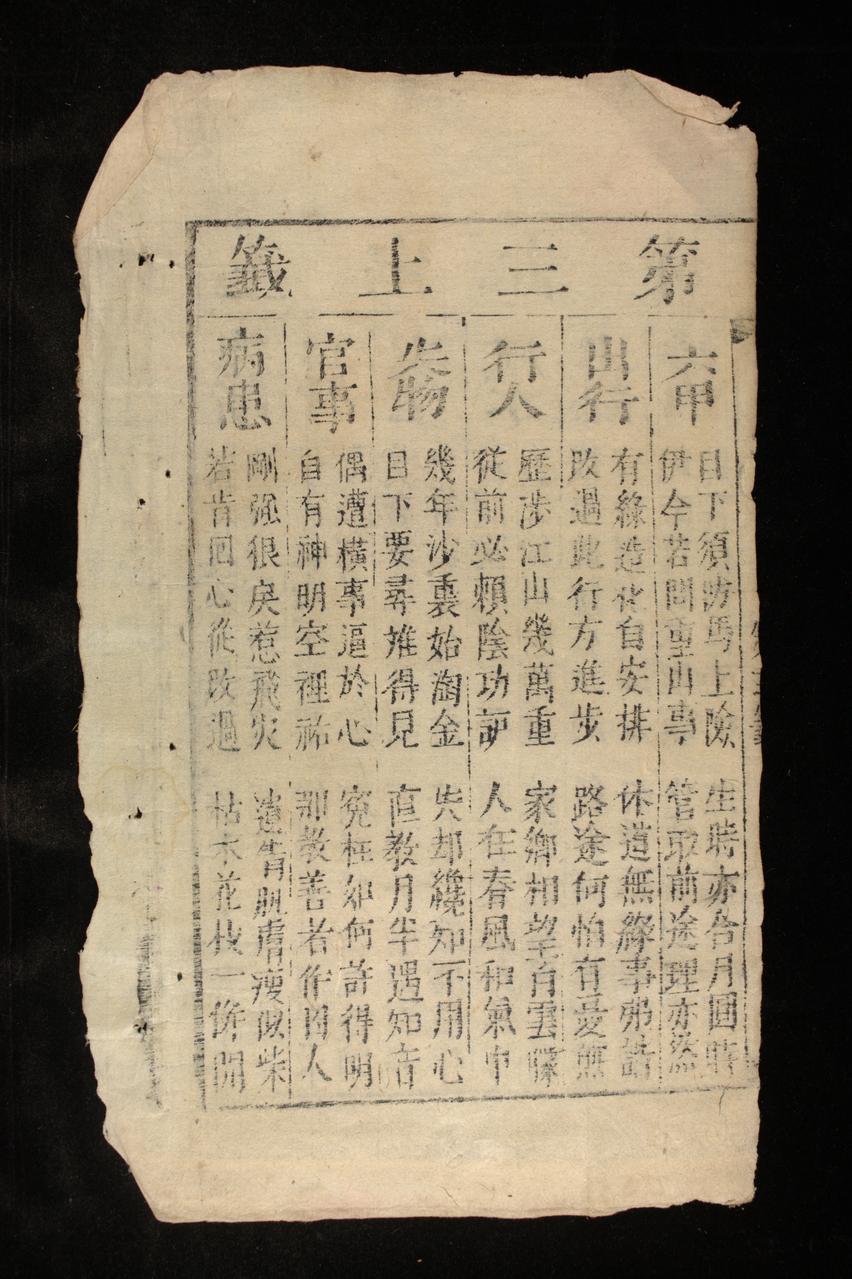 第三上籤
六甲
目下須防馬上險 生時亦合月圓時
伊今若問重山事 管取前途理亦
出行
有緣造化自安排 休道無緣事弗諧
改過此行方進步 路途何怕有憂無
行人
歷涉江山幾萬重 家鄉相望有雲
從前必賴陰功 人在春風和氣中
失物
幾年沙裏始淘金 失却纔知不用心
目下要尋難得見 直教月半遇知音
官事
偶遭橫事逼於心 冤枉如何許得明
自有神明空裡祐 那教善者作囚人
病患
剛强狠戾惹飛災 肌膚瘦似柴
若肯回心從改過 枯木花枝一併開